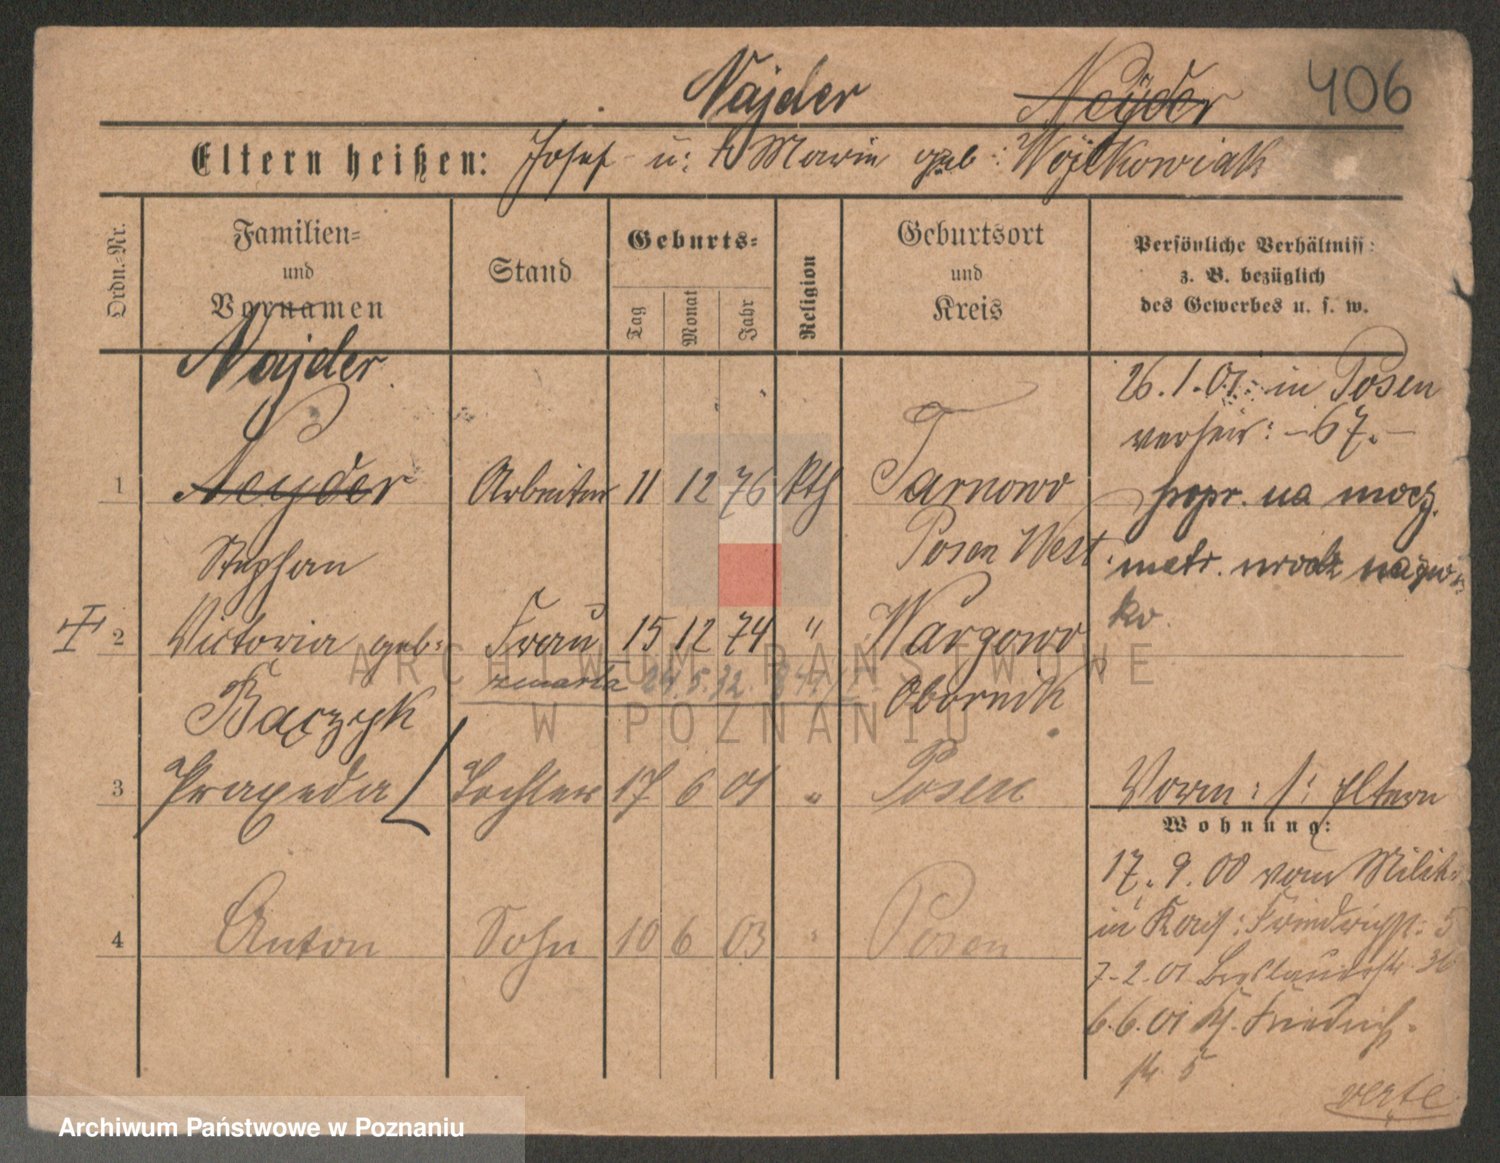 Najder Neyder 406
Eltern heißen: Josef u: Marie geb: Wojtkowiak
Ordn.-Nr.
Familien- und Vornamen
Stand
Geburts-
Tag Monat Jahr
Religion
Geburtsort und Kreis
Persönliche Verhältniss:
z. B. bezüglich
des Gewerbes u. s. w.
Najder
26.1.01. in Posen
verheir: -67.-
1 Neyder Arbeiter 11 12 76 kth Tarnowo
popr. na mocy
Stephan Posen West
metr. urodz
ko.
2 Victoria geb: Frau 15 12 74 " Wargowo
zmarła 24.5.12.
Bączyk Obornik
3 Praxeda Tochter 17 6 01 " Posen
Vorm: /: Eltern
Wohnung:
17.9.00 vom Milit.
4 Anton Sohn 10 6 03 " Posen
in Friedrichst: 5
7.2.01 Breslauerstr.
6.6.01 Friedrich-
str. 5
verte
ARCHIWUM PAŃSTWOWE
W POZNANIU
Archiwum Państwowe w Poznaniu